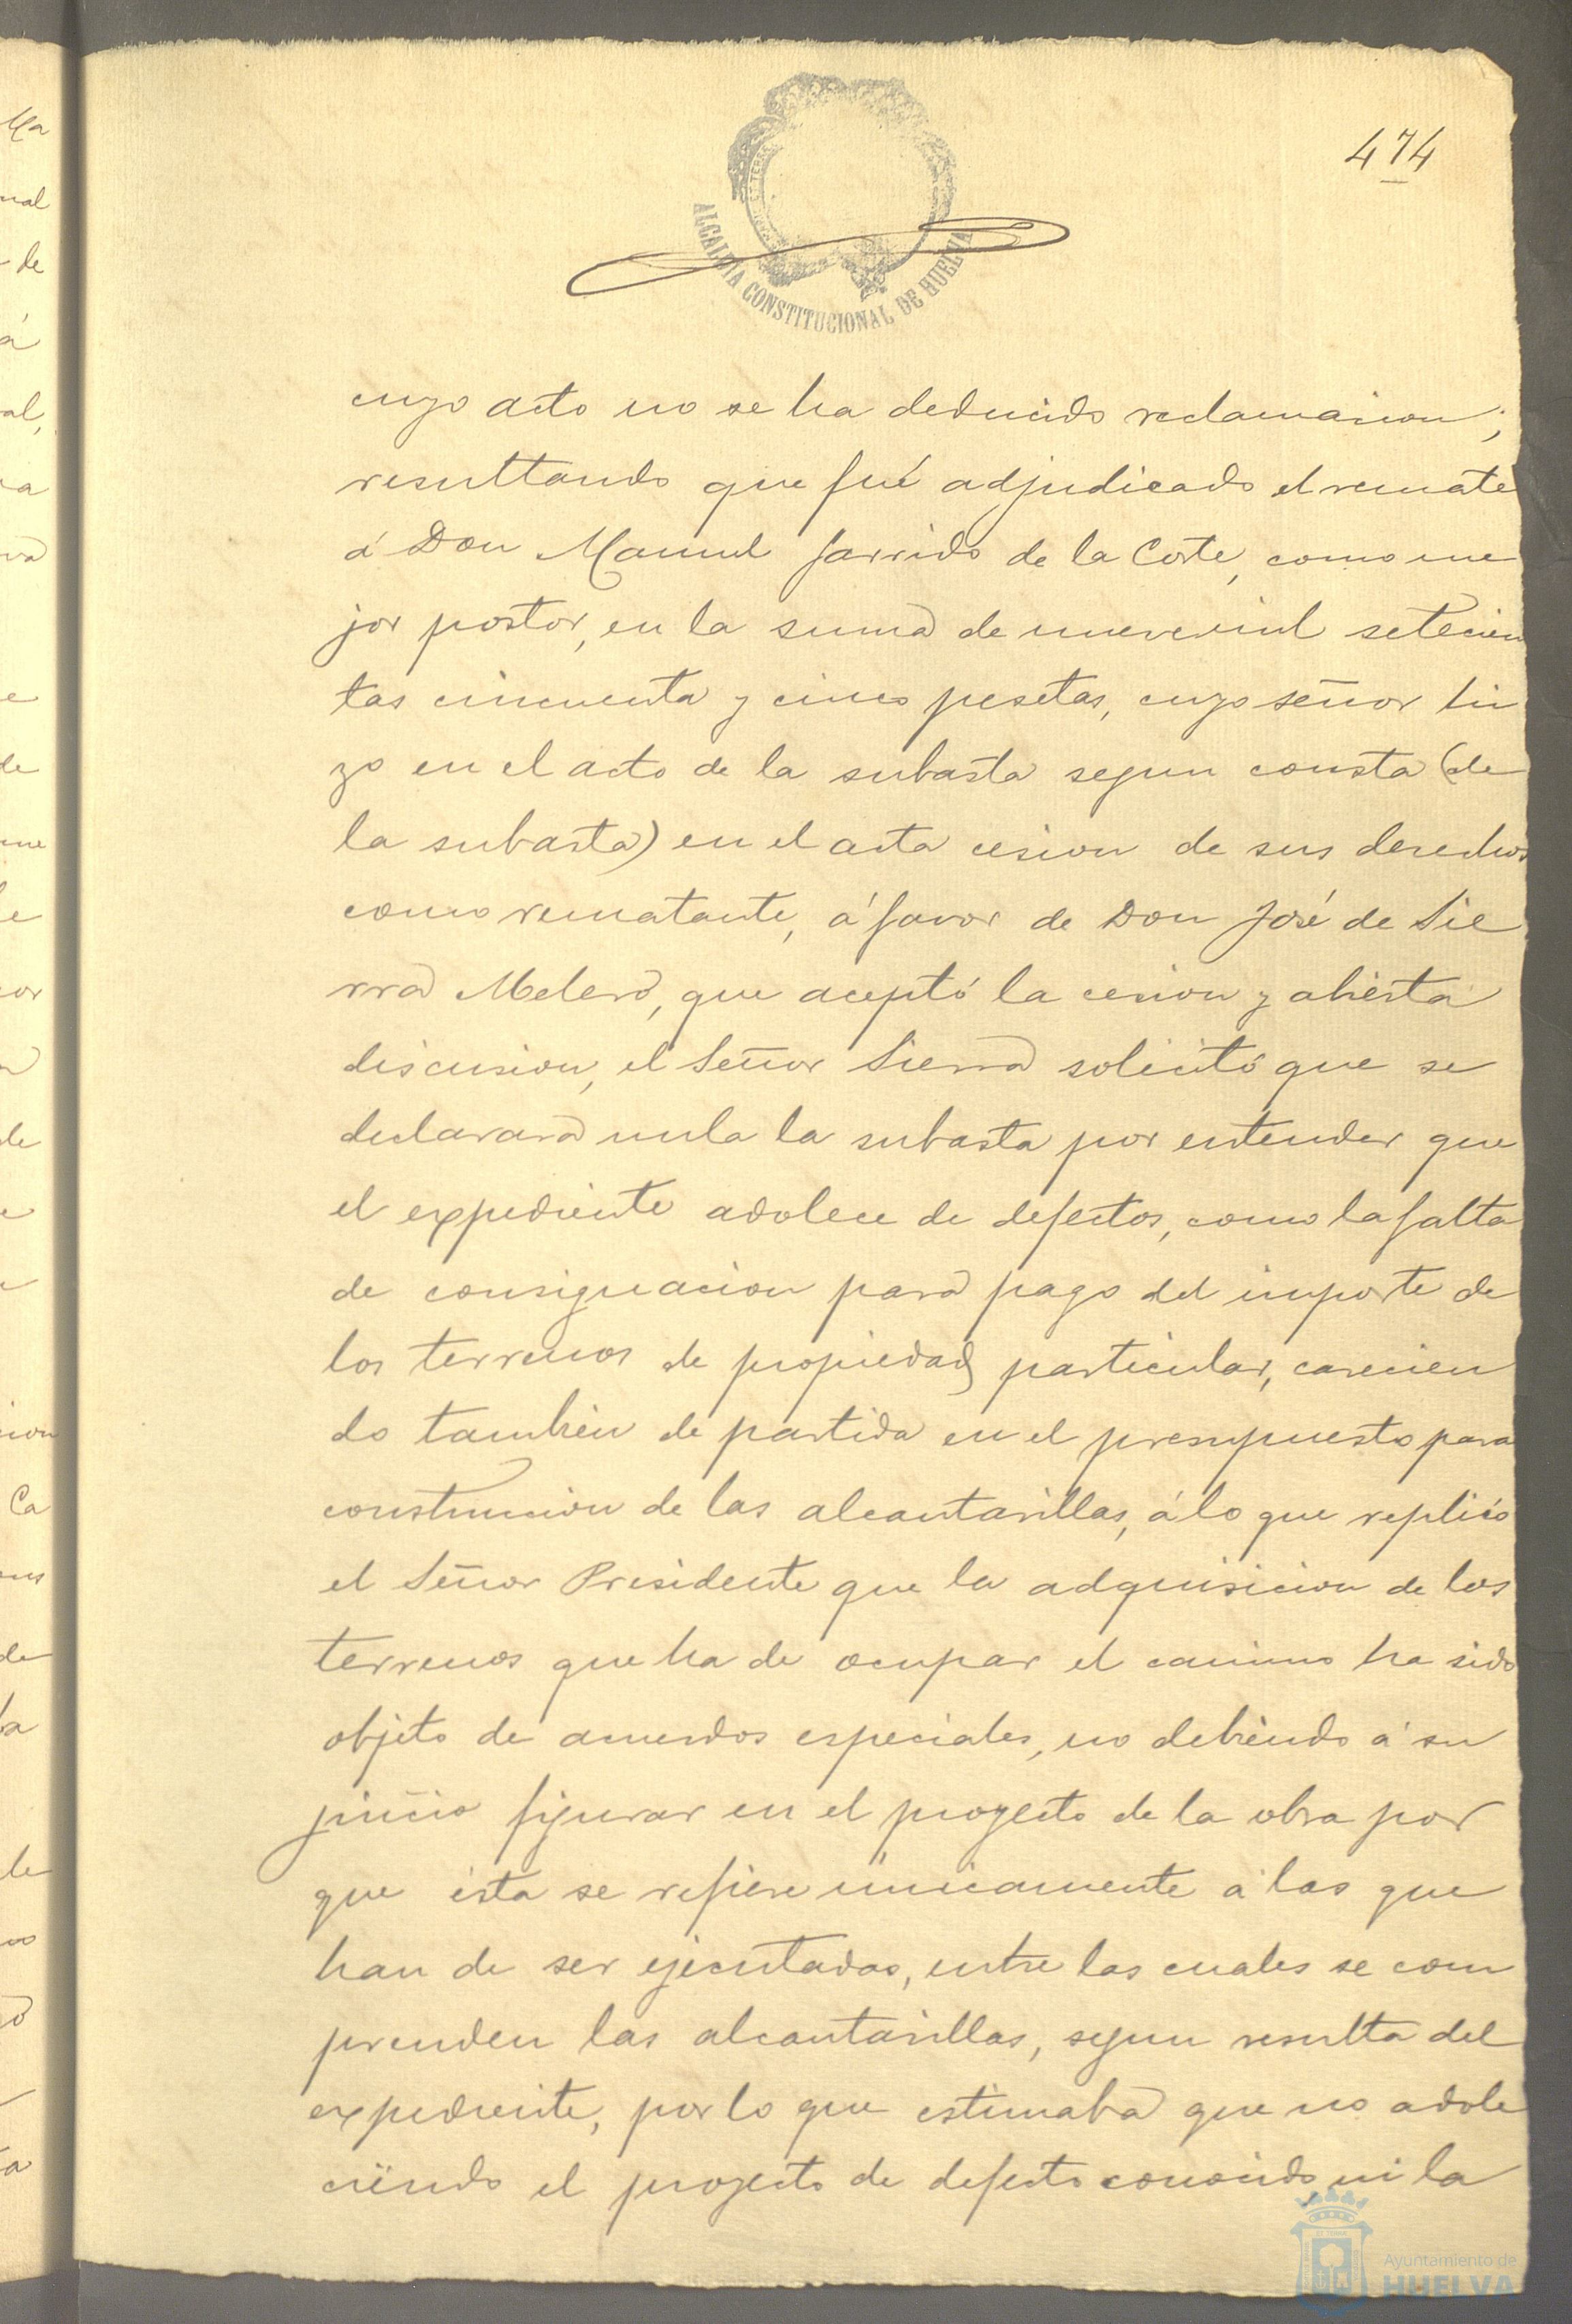 474
ALCALDIA CONSTITUCIONAL DE HUELVA
cuyo acto no se ha deducido reclamacion;
resultando que fué adjudicado el remate
á Don Manuel Garrido de la Corte, como me
jor postor, en la suma de nuevemil setecien
tas cincuenta y cinco pesetas, cuyo señor hi
zo en el acto de la subasta segun consta (de
la subasta) en el acta cesion de sus derechos
como rematante, á favor de Don José de Sie
rra Melero, que aceptó la cesion y abierta
discusion, el Señor Sierra solicitó que se
declarara nula la subasta por entender que
el expediente adolece de defectos, como la falta
de consignacion para pago del importe de
los terrenos de propiedad particular, carecien
do tambien de partida en el presupuesto para
construccion de las alcantarillas, á lo que replicó
el Señor Presidente que la adquisicion de los
terrenos que ha de ocupar el camino ha sido
objeto de acuerdos especiales, no debiendo á su
juicio figurar en el proyecto de la obra por
que ésta se refiere únicamente á las que
han de ser ejecutadas, entre las cuales se com
prenden las alcantarillas, segun resulta del
expediente, por lo que estimaba que no adole
ciendo el proyecto de defecto conocido, ni la
Ayuntamiento de
HUELVA